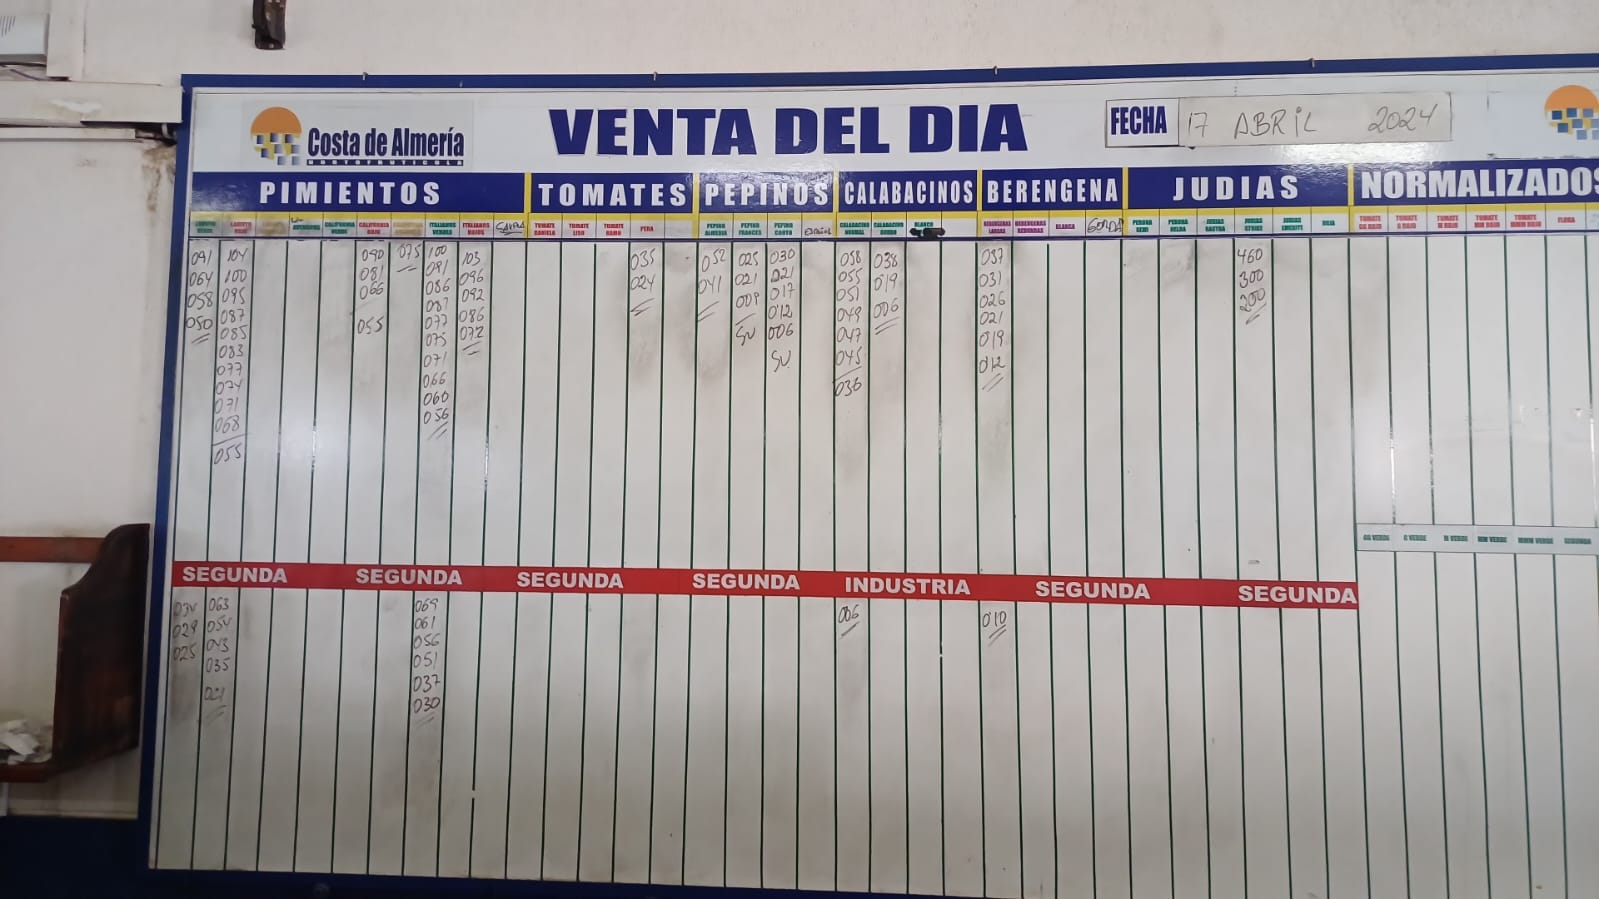 Costa de Almería
HORTOFRUTICOLA
VENTA DEL DIA
FECHA 17 ABRIL 2024
PIMIENTOS TOMATES PEPINOS CALABACINOS BERENGENA JUDIAS NORMALIZADOS
LAMUYO VERDE
091
064
058
050
LAMUYO ROJO
104
100
095
087
085
083
077
074
071
068
055
CALIFORNIA VERDE
CALIFORNIA ROJO
090
081
066
055
075
ITALIANOS VERDES
100
091
086
081
077
075
071
066
060
056
ITALIANOS ROJOS
103
096
092
086
072
TOMATE DANIELA
TOMATE LISO
TOMATE RAMO
PERA
035
024
PEPINO ALMERIA
052
041
PEPINO FRANCES
025
021
009
SU
PEPINO CORTO
030
021
017
012
006
SU.
CALABACINO NORMAL
058
055
051
049
047
045
036
CALABACINO GORDO
038
019
006
BLANCO
BERENGENAS LARGAS
037
031
026
021
019
012
BERENGENAS REDONDAS
BLANCA
GORDA
PERONA SEMI
PERONA HELDA
JUDIAS RASTRA
JUDIAS STRIKE
460
300
200
JUDIAS EMERITE
ROJA
TOMATE GG ROJO
TOMATE G ROJO
TOMATE M ROJO
TOMATE MM ROJO
TOMATE MMM ROJO
FLORA
GG VERDE G VERDE M VERDE MM VERDE MMM VERDE SEGUNDA
SEGUNDA SEGUNDA SEGUNDA SEGUNDA INDUSTRIA SEGUNDA SEGUNDA
034
029
025
063
054
043
035
021
069
061
056
051
037
030
006
010